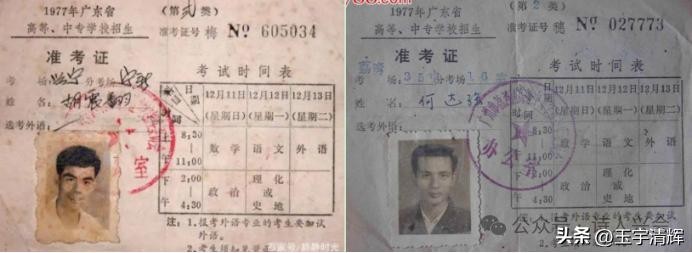 1977年广东省
高等、中专学校招生
(第弍类)
准考证号 梅 № 605034
准考证
考场: 分考场
姓名:
选考外语:
考试时间表
日期
时间
12月11日
(星期日)
12月12日
(星期一)
12月13日
(星期二)
上午
8:30
11:00
数学
语文
外语
下午
2:00
4:30
政治
理化
或
史地
注: 1. 报考外语专业的考生要加试
外语。
1977年广东省
高等、中专学校招生
(第2类)
准考证号 穗 № 027773
准考证
荔湾
考场: 35 分考场 16
姓名: 何志强
选考外语:
考试时间表
12月11日
(星期日)
12月12日
(星期一)
12月13日
(星期二)
时间
8:30
11:00
数学
语文
外语
下午
2:00
4:30
政治
理化
或
史地
办
注: 1. 报考外语专业的考生要加试
外语。
公众号
头条 @玉宇清辉